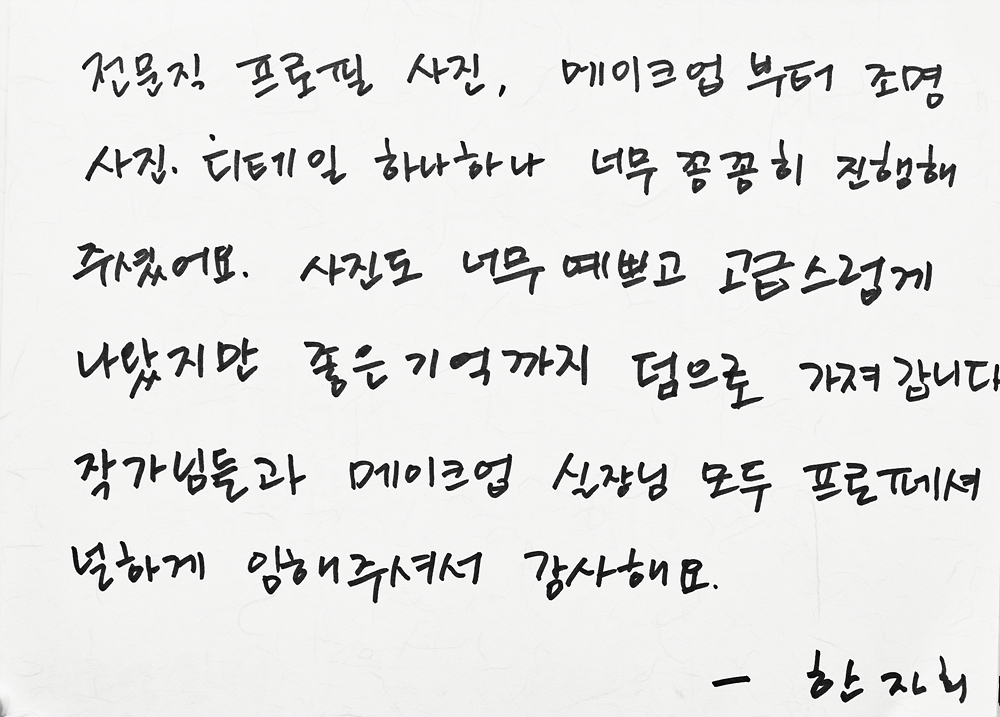 전문직 프로필 사진, 메이크업 부터 조명
사진. 디테일 하나하나 너무 꽁꽁히 진행해
주셨어요. 사진도 너무 예쁘고 고급스럽게
나왔지만 좋은 기억까지 덤으로 가져갑니다
작가님들과 메이크업 실장님 모두 프로페셔
널하게 임해주셔서 감사해요.
- 한자희